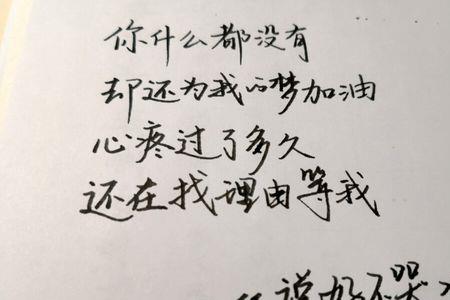 你什么都没有
却还为我的梦加油
心疼过了多久
还在找理由等我
说好不哭